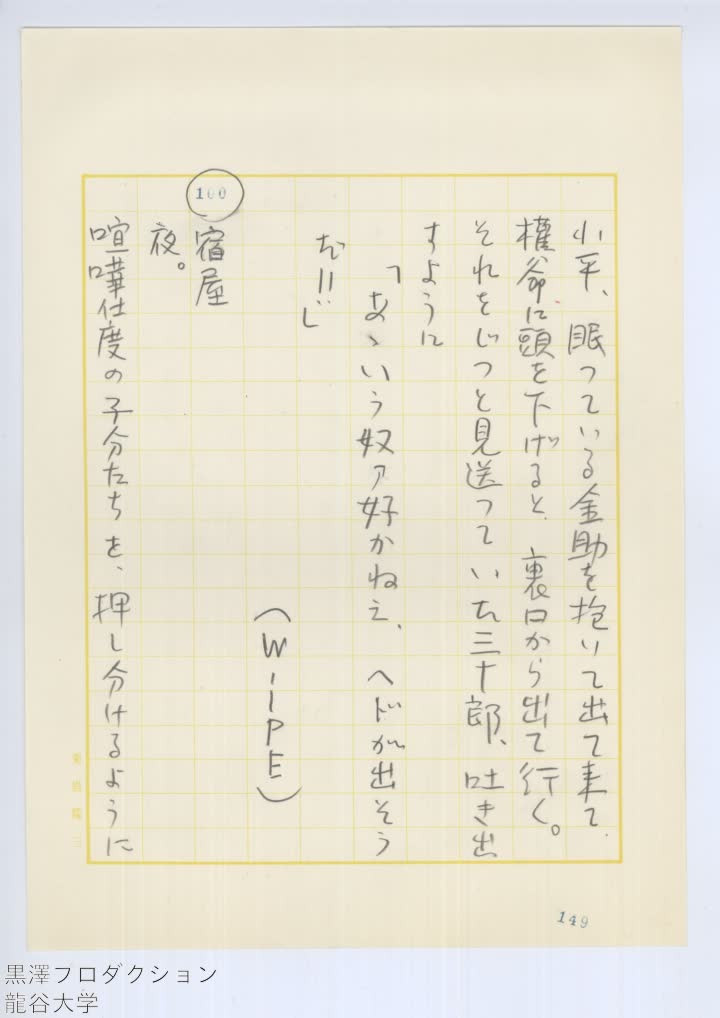 小平、眠つている金助を抱いて出て来て、
權爺に頭を下げると、裏口から出て行く。
それをじつと見送つていた三十郎、吐き出
すように
「あゝいう奴ァ好かねえ、ヘドが出そう
だ!!」
(WIPE)
100
宿屋
夜。
喧嘩仕度の子分たちを、押し分けるように
菊島隆三
149
黒澤プロダクション
龍谷大学